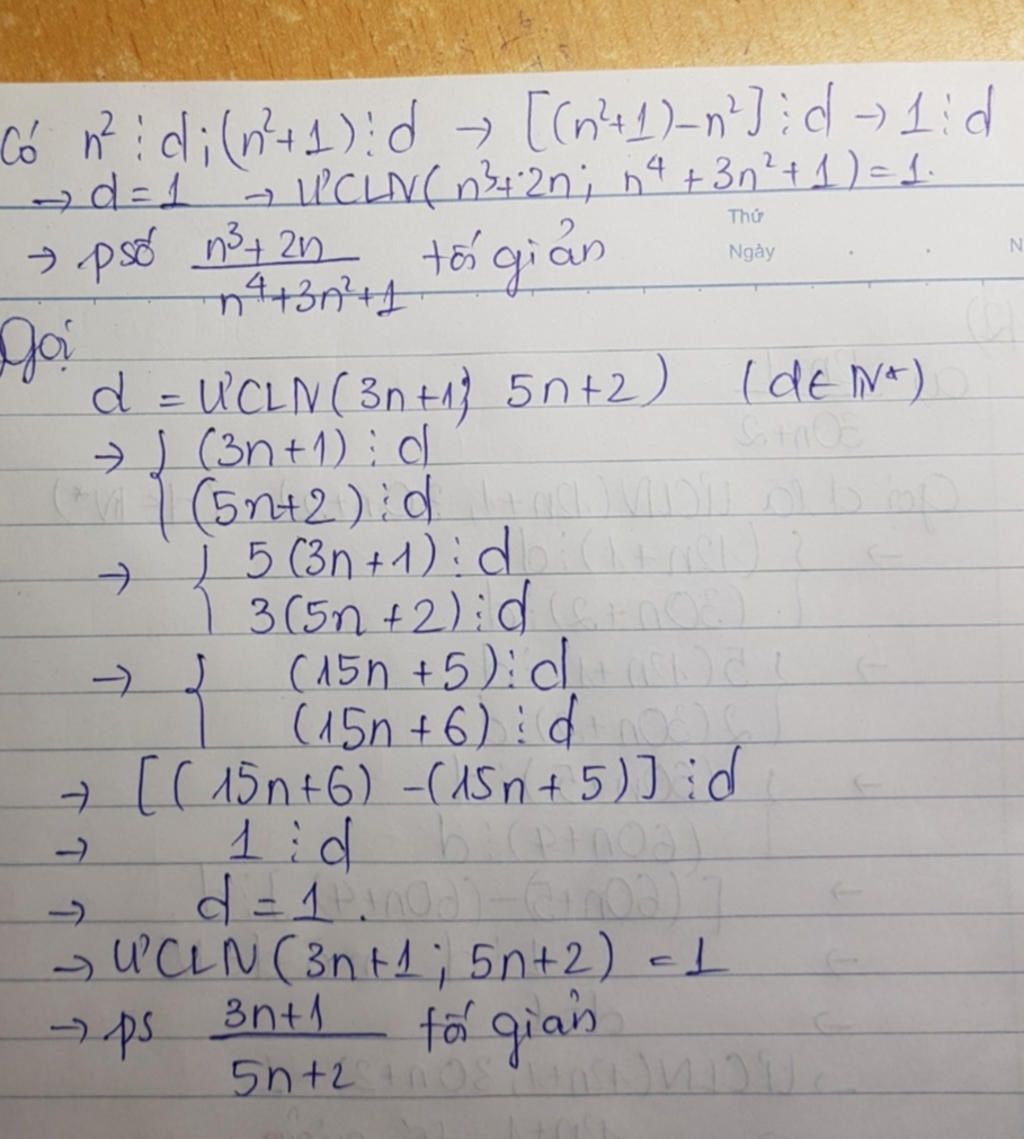 Có n² ⋮ d; (n²+1) ⋮ d → [(n²+1)-n²] ⋮ d → 1 ⋮ d
→ d = 1 → ƯCLN(n³+2n; n⁴+3n²+1) = 1.
Thứ
→ psố n³+2n / n⁴+3n²+1 tối giản
Ngày
N
Gọi
d = ƯCLN(3n+1; 5n+2) (d∈N*)
→ { (3n+1) ⋮ d
(5n+2) ⋮ d
→ { 5(3n+1) ⋮ d
3(5n+2) ⋮ d
→ { (15n+5) ⋮ d
(15n+6) ⋮ d
→ [(15n+6) -(15n+5)] ⋮ d
→ 1 ⋮ d
→ d = 1.
→ ƯCLN(3n+1; 5n+2) = 1
→ ps 3n+1 / 5n+2 tối giản